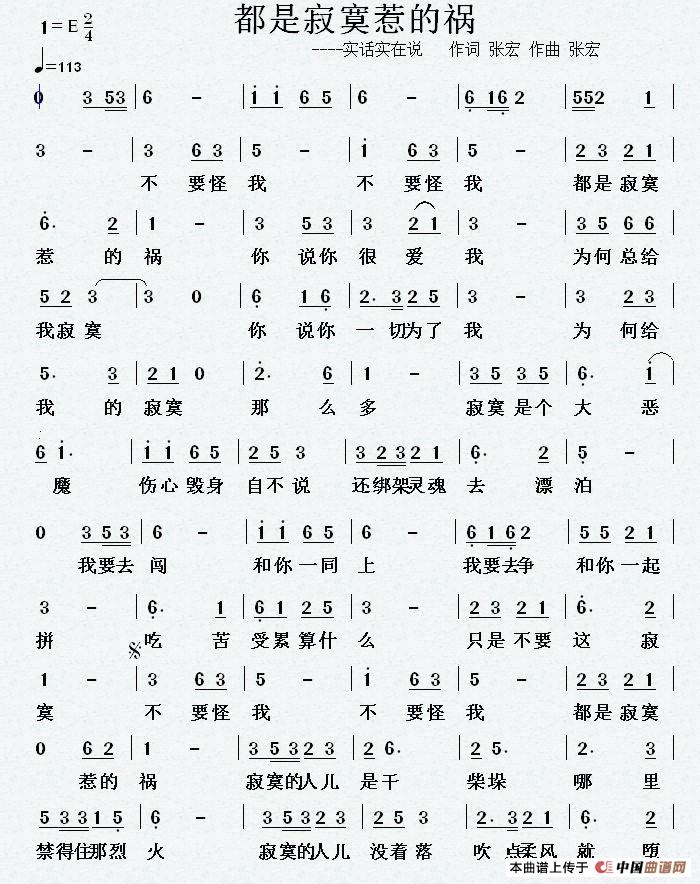 都是寂寞惹的祸
1=E 2/4
----实话实在说 作词 张宏 作曲 张宏
♩=113
0 3 5 3 | 6 - | i i 6 5 | 6 - | 6 1 6 2 | 5 5 2 1 |
3 - | 3 6 3 | 5 - | i 6 3 | 5 - | 2 3 2 1 |
不 要怪 我 不 要怪 我 都是 寂寞
6. 2 | 1 - | 3 5 3 | 3 2 1 | 3 - | 3 5 6 6 |
惹 的 祸 你 说你 很 爱 我 为何 总给
5 2 3 | 3 0 | 6 1 6 | 2. 3 2 5 | 3 - | 3 2 3 |
我寂 寞 你 说你 一 切为了 我 为 何给
5. 3 | 2 1 0 | 2. 6 | 1 - | 3 5 3 5 | 6. i |
我 的 寂寞 那 么 多 寂寞 是个 大 恶
6 i. | i i 6 5 | 2 5 3 | 3 2 3 2 1 | 6. 2 | 5 - |
魔 伤心 毁身 自不 说 还绑架灵魂 去 漂 泊
0 3 5 3 | 6 - | i i 6 5 | 6 - | 6 1 6 2 | 5 5 2 1 |
我要去 闯 和你 一同 上 我要去争 和你 一起
3 - | 6. 1 | 6 1 2 5 | 3 - | 2 3 2 1 | 6. 2 |
拼 吃 苦 受累 算什 么 只是 不要 这 寂
1 - | 3 6 3 | 5 - | i 6 3 | 5 - | 2 3 2 1 |
寞 不 要怪 我 不 要怪 我 都是 寂寞
0 6 2 | 1 - | 3 5 3 2 3 | 5 6. | 2 5. | 2. 3 |
惹的 祸 寂寞的人儿 是干 柴垛 哪 里
5 3 3 1 5 | 6 - | 3 5 3 2 3 | 5 5 2 | 2. 3 2 1 | 6. 2 |
禁得住那烈 火 寂寞的人儿 没着 落 吹 点柔风 就 堕
本曲谱上传于 中国曲谱网